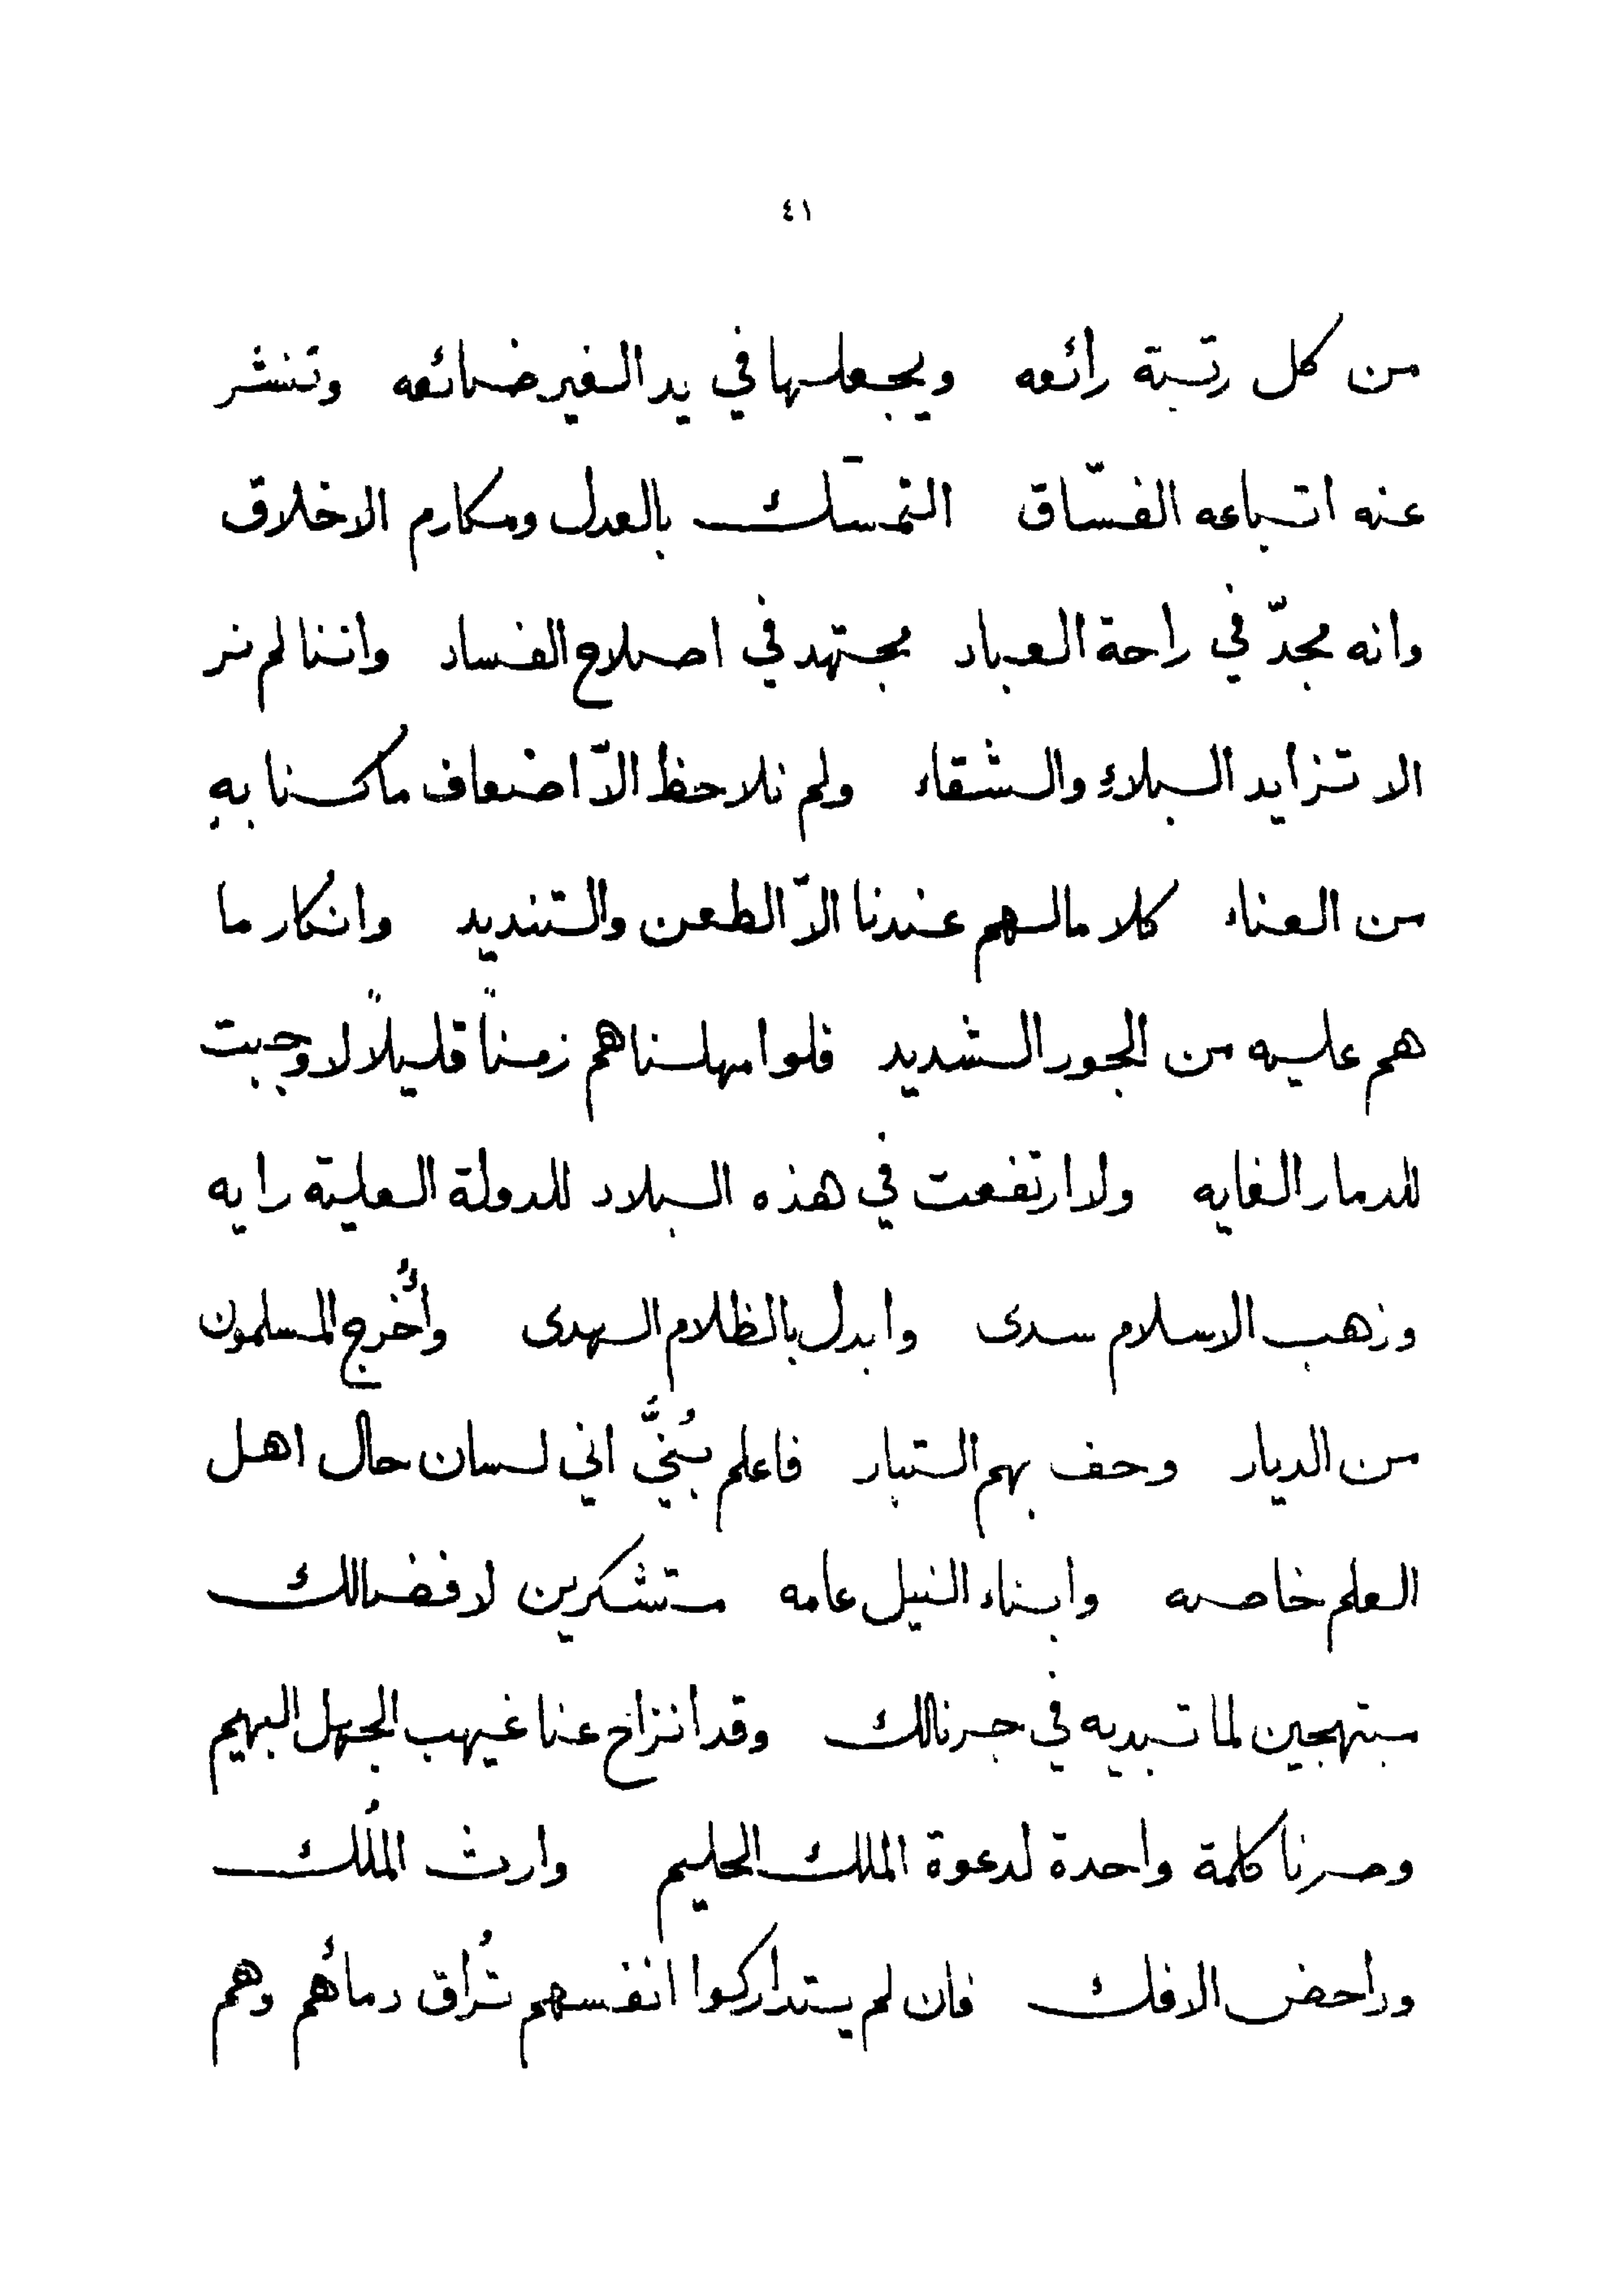 ٤١
من كل رتبة رائعه ويجعلها في يد الغير ضائعه وتنشر
عنه اتباعه الفسّاق التمسّك بالعدل ومكارم الاخلاق
وانه مجدّ في راحة العباد مجتهد في اصلاح الفساد واننا لم نر
الا تزايد البلاءِ والشقاء ولم نلاحظ الاّ اضعاف ما كنا بهِ
من العناء كلا ما لهم عندنا الاّ الطعن والتنديد وانكار ما
هم عليه من الجور الشديد فلو امهلناهم زمناً قليلاً لاوجبت
للدمار الغايه ولا ارتفعت في هذه البلاد للدولة العلية رايه
وذهب الاسلام سدى وابدل بالظلام الهدى وأُخرج المسلمون
من الديار وحف بهم التبار فاعلم بُنيَّ اني لسان حال اهل
العلم خاصه وابناء النيل عامه متشكرين لافضالك
مبتهجين لما تبديه في جرنالك وقد انزاح عنا غيهب الجهل البهيم
وصرنا كلمة واحدة لدعوة الملك الحليم وارث المُلك
وداحض الافك فان لم يتداركوا انفسهم تُراق دمأهم وهم